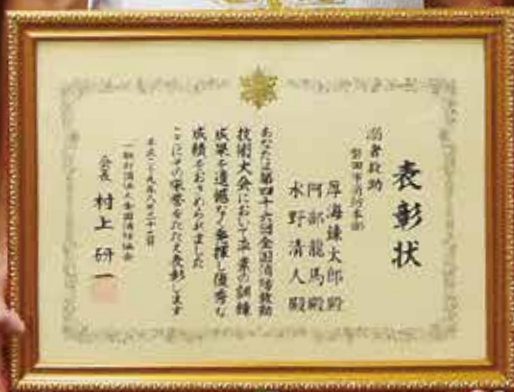 表彰状
溺者救助
磐田市消防本部
厚海鎌太郎殿
阿部龍馬殿
水野清人殿
あなたは第四十六回全国消防救助
技術大会において平素の訓練
成果を遺憾なく発揮し優秀な
成績をおさめられました
ここにその栄誉をたたえ表彰します
平成二十九年八月二十三日
一般財団法人全国消防協会
会長 村上研一